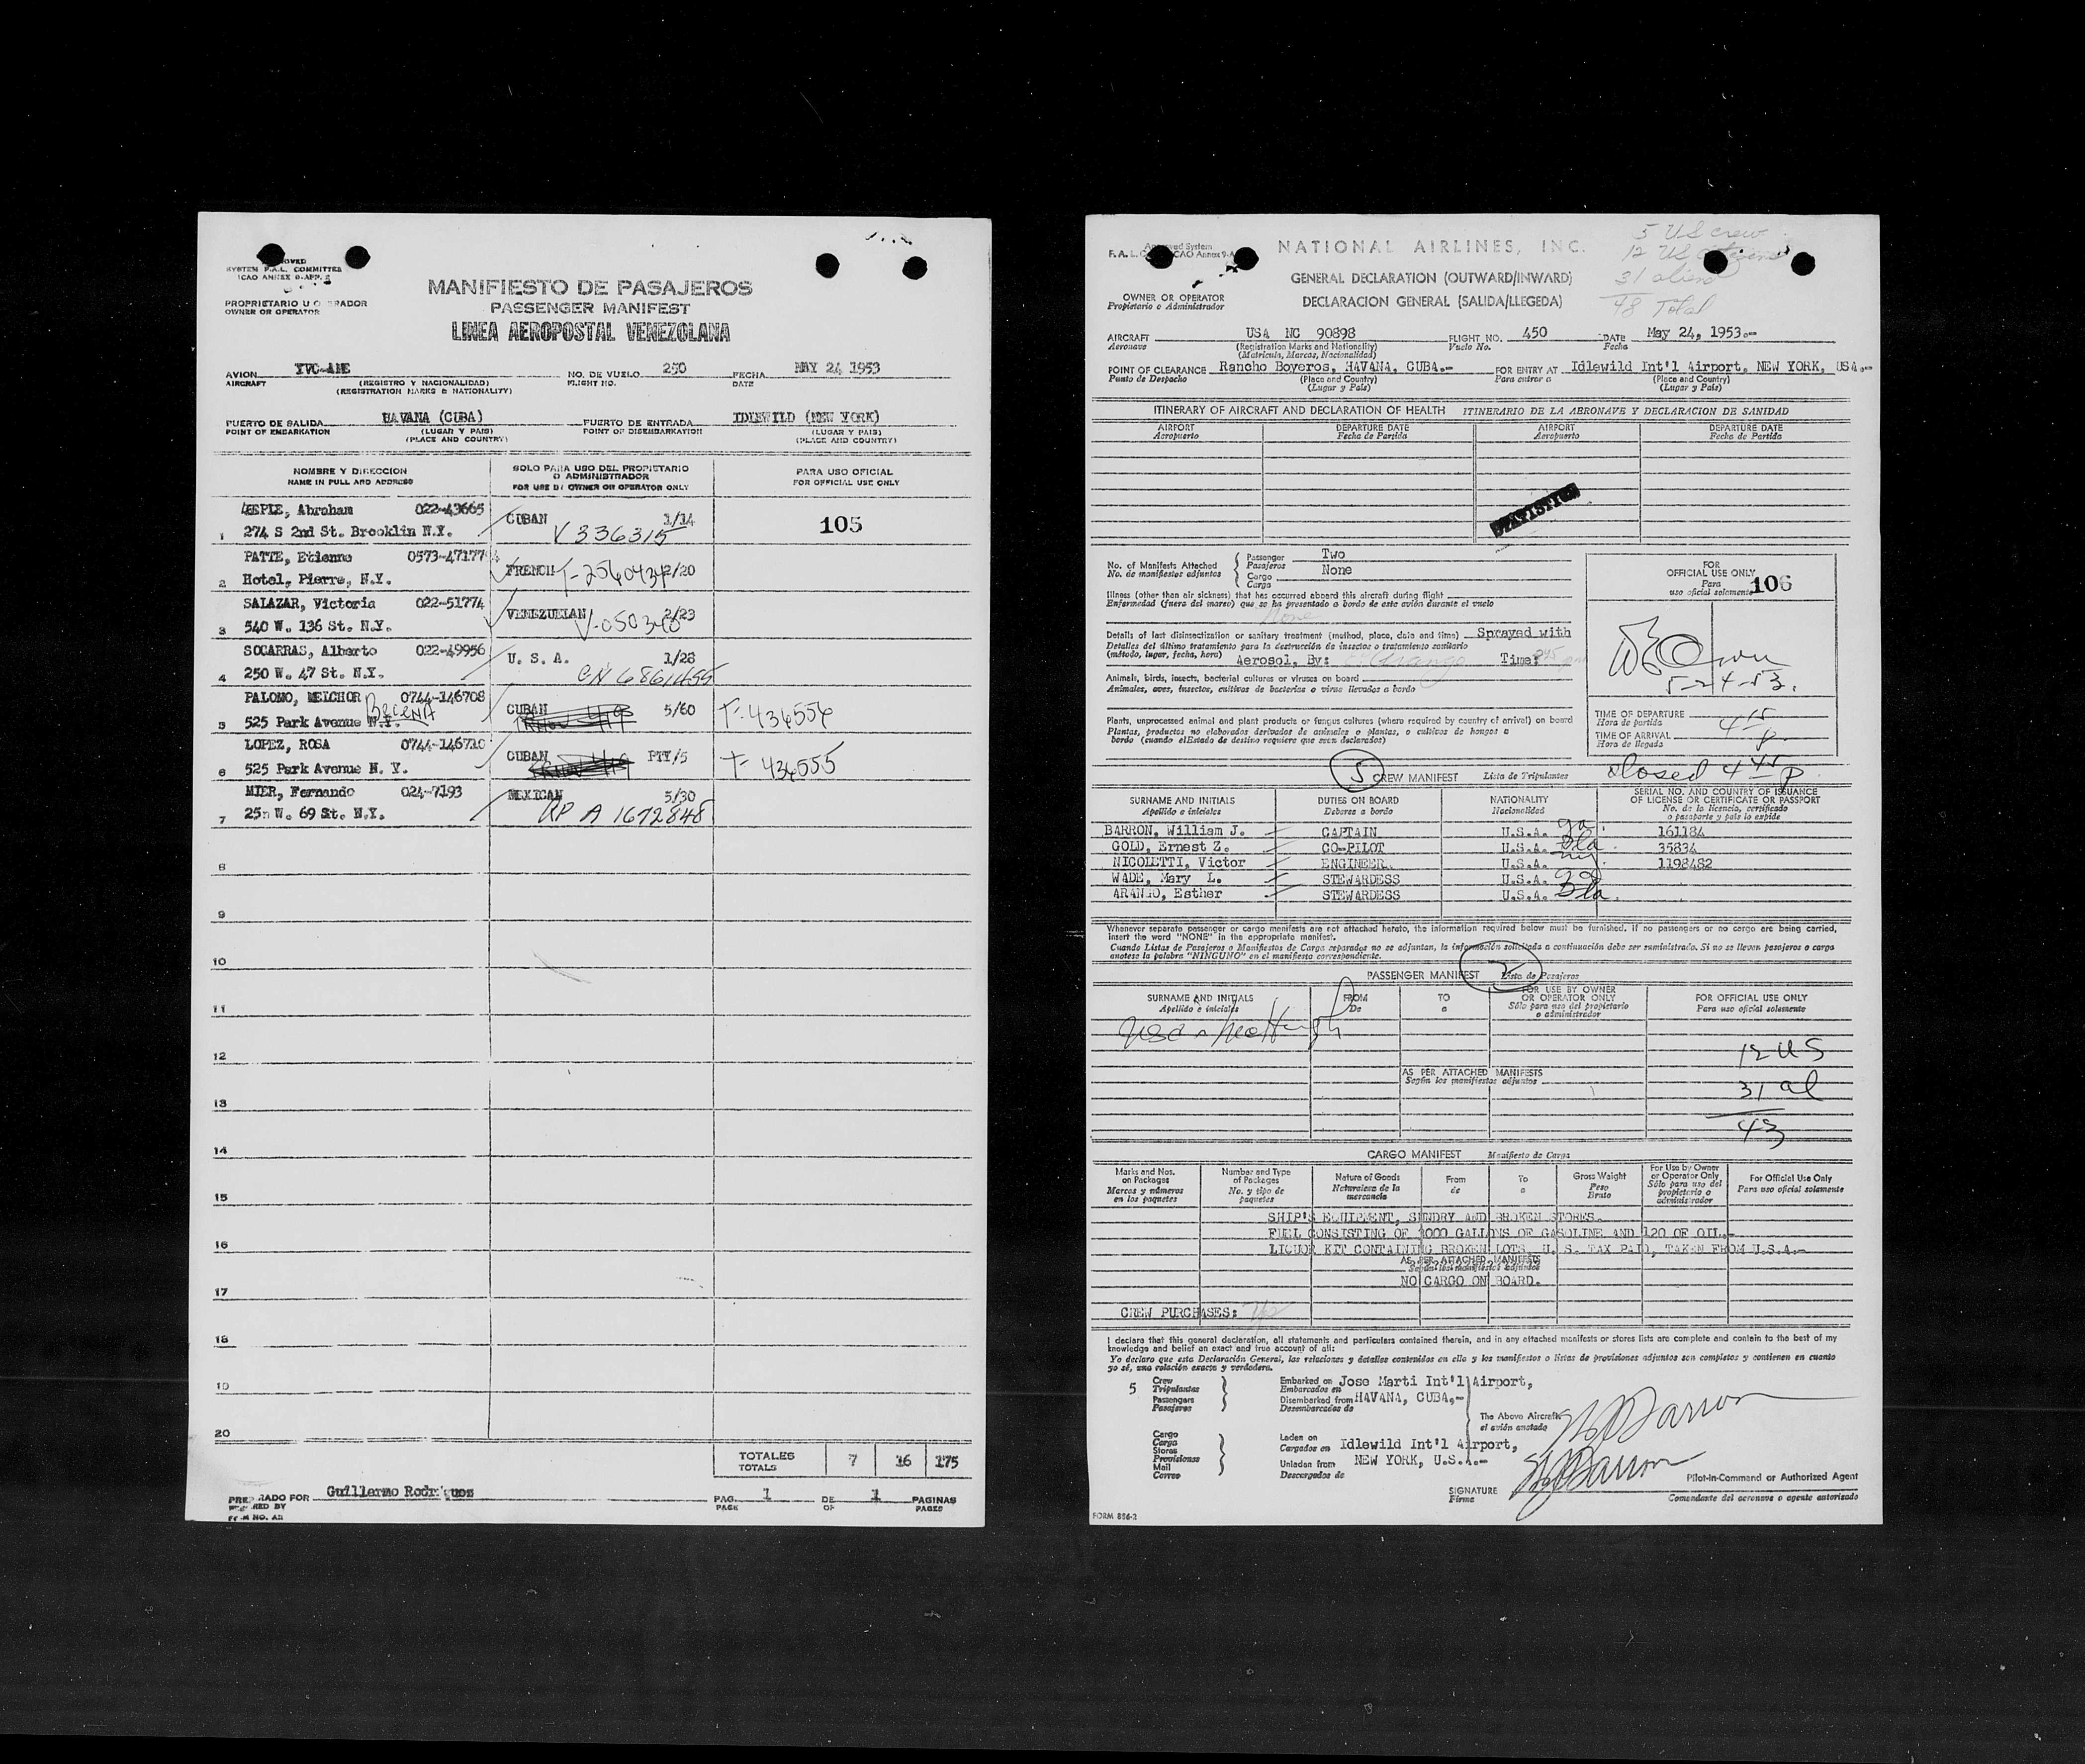 MANIFIESTO DE PASAJEROS
PASSENGER MANIFEST
LINEA AEROPOSTAL VENEZOLANA
SYSTEM F.A.L. COMMITTEE
ICAO ANNEX 9-APP. 2
PROPRIETARIO U O RADOR
OWNER OR OPERATOR
AVION YVC-AME NO. DE VUELO 250 FECHA MAY 24 1953
AIRCRAFT (REGISTRO Y NACIONALIDAD) FLIGHT NO. DATE
(REGISTRATION MARKS & NATIONALITY)
PUERTO DE SALIDA HAVANA (CUBA) PUERTO DE ENTRADA IDLEWILD (NEW YORK)
POINT OF EMBARKATION (LUGAR Y PAIS) POINT OF DISEMBARKATION (LUGAR Y PAIS)
(PLACE AND COUNTRY) (PLACE AND COUNTRY)
NOMBRE Y DIRECCION SOLO PARA USO DEL PROPIETARIO O ADMINISTRADOR PARA USO OFICIAL
NAME IN FULL AND ADDRESS FOR USE BY OWNER OR OPERATOR ONLY FOR OFFICIAL USE ONLY
Abraham 022-43665 CUBAN 1/14 105
1 274 S 2nd St. Brooklin N.Y. V 336315
PATTE, Etienne 0573-47177
2 Hotel, Pierre, N.Y. FRENCH T-256043 2/20
SALAZAR, Victoria 022-51774 VENEZUELAN 2/23
3 540 W. 136 St. N.Y. V-050340
SOCARRAS, Alberto 022-49956 U. S. A. 1/28
4 250 W. 47 St. N.Y. CN 6861455
PALOMO, MELCHOR 0744-146708 CUBAN 5/60 T-434556
5 525 Park Avenue N.Y. BECENA
LOPEZ, ROSA 0744-146710 CUBAN PTY/5 T-434555
6 525 Park Avenue N. Y.
MIER, Fernando 024-7193 MEXICAN 5/30
7 W. 69 St. N.Y. RP A 1672848
8
9
10
11
12
13
14
15
16
17
18
19
20
TOTALES 7 16 175
TOTALS
PREPARADO FOR Guillermo Rodriguez PAG. 1 DE 1 PAGINAS
PAGE OF PAGES
5 US crew
12 US citizens
31 aliens
48 Total
NATIONAL AIRLINES, INC.
GENERAL DECLARATION (OUTWARD/INWARD)
DECLARACION GENERAL (SALIDA/LLEGEDA)
OWNER OR OPERATOR
Propietario o Administrador
AIRCRAFT USA NC 90898 FLIGHT NO. 450 DATE May 24, 1953.-
Aeronave (Registration Marks and Nationality) Vuelo No. Fecha
(Matricula, Marcas, Nacionalidad)
POINT OF CLEARANCE Rancho Boyeros, HAVANA, CUBA.- FOR ENTRY AT Idlewild Int'l Airport, NEW YORK, USA.-
Punto de Despacho (Place and Country) Para entrar a (Place and Country)
(Lugar y País) (Lugar y País)
ITINERARY OF AIRCRAFT AND DECLARATION OF HEALTH ITINERARIO DE LA AERONAVE Y DECLARACION DE SANIDAD
AIRPORT DEPARTURE DATE AIRPORT DEPARTURE DATE
Aeropuerto Fecha de Partida Aeropuerto Fecha de Partida
STATISTICS
No. of Manifests Attached Passenger Two
No. de manifiestos adjuntos Pasajeros
Cargo None
Carga
FOR
OFFICIAL USE ONLY
Para
uso oficial solamente 106
Illness (other than air sickness) that has occurred aboard this aircraft during flight
Enfermedad (fuera del mareo) que se ha presentado a bordo de este avión durante el vuelo
None
Details of last disinsectization or sanitary treatment (method, place, date and time) Sprayed with
Detalles del último tratamiento para la destrucción de insectos o tratamiento sanitario
(método, lugar, fecha, hora) Aerosol, By: E. Arango Time:
5-24-53.
Animals, birds, insects, bacterial cultures or viruses on board
Animales, aves, insectos, cultivos de bacterias o virus llevados a bordo
Plants, unprocessed animal and plant products or fungus cultures (where required by country of arrival) on board
Plantas, productos no elaborados derivados de animales o plantas, o cultivos de hongos a
bordo (cuando el Estado de destino requiere que sean declarados)
TIME OF DEPARTURE
Hora de partida 4 15 p
TIME OF ARRIVAL
Hora de llegada
5 CREW MANIFEST Lista de Tripulantes closed 4 45 p
SURNAME AND INITIALS DUTIES ON BOARD NATIONALITY SERIAL NO. AND COUNTRY OF ISSUANCE OF LICENSE OR CERTIFICATE OR PASSPORT
Apellido e iniciales Deberes a bordo Nacionalidad No. de la licencia, certificado o pasaporte y país lo expide
BARRON, William J. CAPTAIN U.S.A. 161184
GOLD, Ernest Z. CO-PILOT U.S.A. Fla. 35834
NICOLETTI, Victor ENGINEER. U.S.A. 1198482
WADE, Mary L. STEWARDESS U.S.A.
ARANGO, Esther STEWARDESS U.S.A. Fla.
Whenever separate passenger or cargo manifests are not attached hereto, the information required below must be furnished. If no passengers or no cargo are being carried,
insert the word "NONE" in the appropriate manifest.
Cuando Listas de Pasajeros o Manifiestos de Carga separados no se adjuntan, la información solicitada a continuación debe ser suministrada. Si no se llevan pasajeros o carga
anotese la palabra "NINGUNO" en el manifiesto correspondiente.
PASSENGER MANIFEST 2 Lista de Pasajeros
SURNAME AND INITIALS FROM TO FOR USE BY OWNER OR OPERATOR ONLY FOR OFFICIAL USE ONLY
Apellido e iniciales De a Sólo para uso del propietario o administrador Para uso oficial solamente
12 US
AS PER ATTACHED MANIFESTS
Según los manifiestos adjuntos
31 al
43
CARGO MANIFEST Manifiesto de Carga
Marks and Nos. on Packages Number and Type of Packages Nature of Goods From To Gross Weight For Use by Owner or Operator Only For Official Use Only
Marcas y números en los paquetes No. y tipo de paquetes Naturaleza de la mercancía de a Peso Bruto Sólo para uso del propietario o administrador Para uso oficial solamente
SHIP'S EQUIPMENT, SUNDRY AND BROKEN STORES.
FUEL CONSISTING OF 1000 GALLONS OF GASOLINE AND 120 OF OIL.-
LIQUOR KIT CONTAINING BROKEN LOTS, U. S. TAX PAID, TAKEN FROM U.S.A.-
AS PER ATTACHED MANIFESTS
Según los manifiestos adjuntos
NO CARGO ON BOARD.
CREW PURCHASES:
I declare that this general declaration, all statements and particulars contained therein, and in any attached manifests or stores lists are complete and contain to the best of my
knowledge and belief an exact and true account of all:
Yo declaro que esta Declaración General, las relaciones y detalles contenidos en ella y los manifiestos o listas de provisiones adjuntos son completos y contienen en cuanto
yo sé, una relación exacta y verdadera.
5 Crew Embarked on Jose Marti Int'l Airport,
Tripulantes Embarcados en
Passengers Disembarked from HAVANA, CUBA,-
Pasajeros Desembarcados de
The Above Aircraft
el avión anotado
Cargo Laden on
Carga Cargados en Idlewild Int'l Airport,
Stores
Provisiones Unladen from NEW YORK, U.S.A.-
Mail Descargados de
Correo
W J Barron
W J Barron
Pilot-in-Command or Authorized Agent
SIGNATURE
Firma Comandante del aeronave o agente autorizado
FORM 886-2